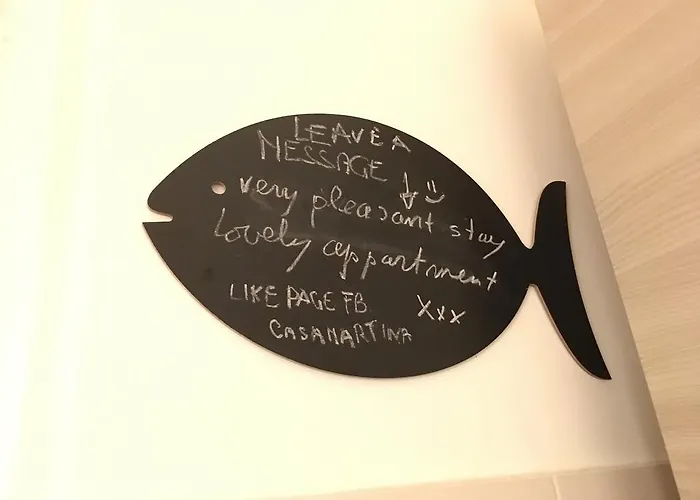 LEAVE A
MESSAGE
very pleasant stay
Lovely appartment
LIKE PAGE FB
XXX
CASAMARTINA